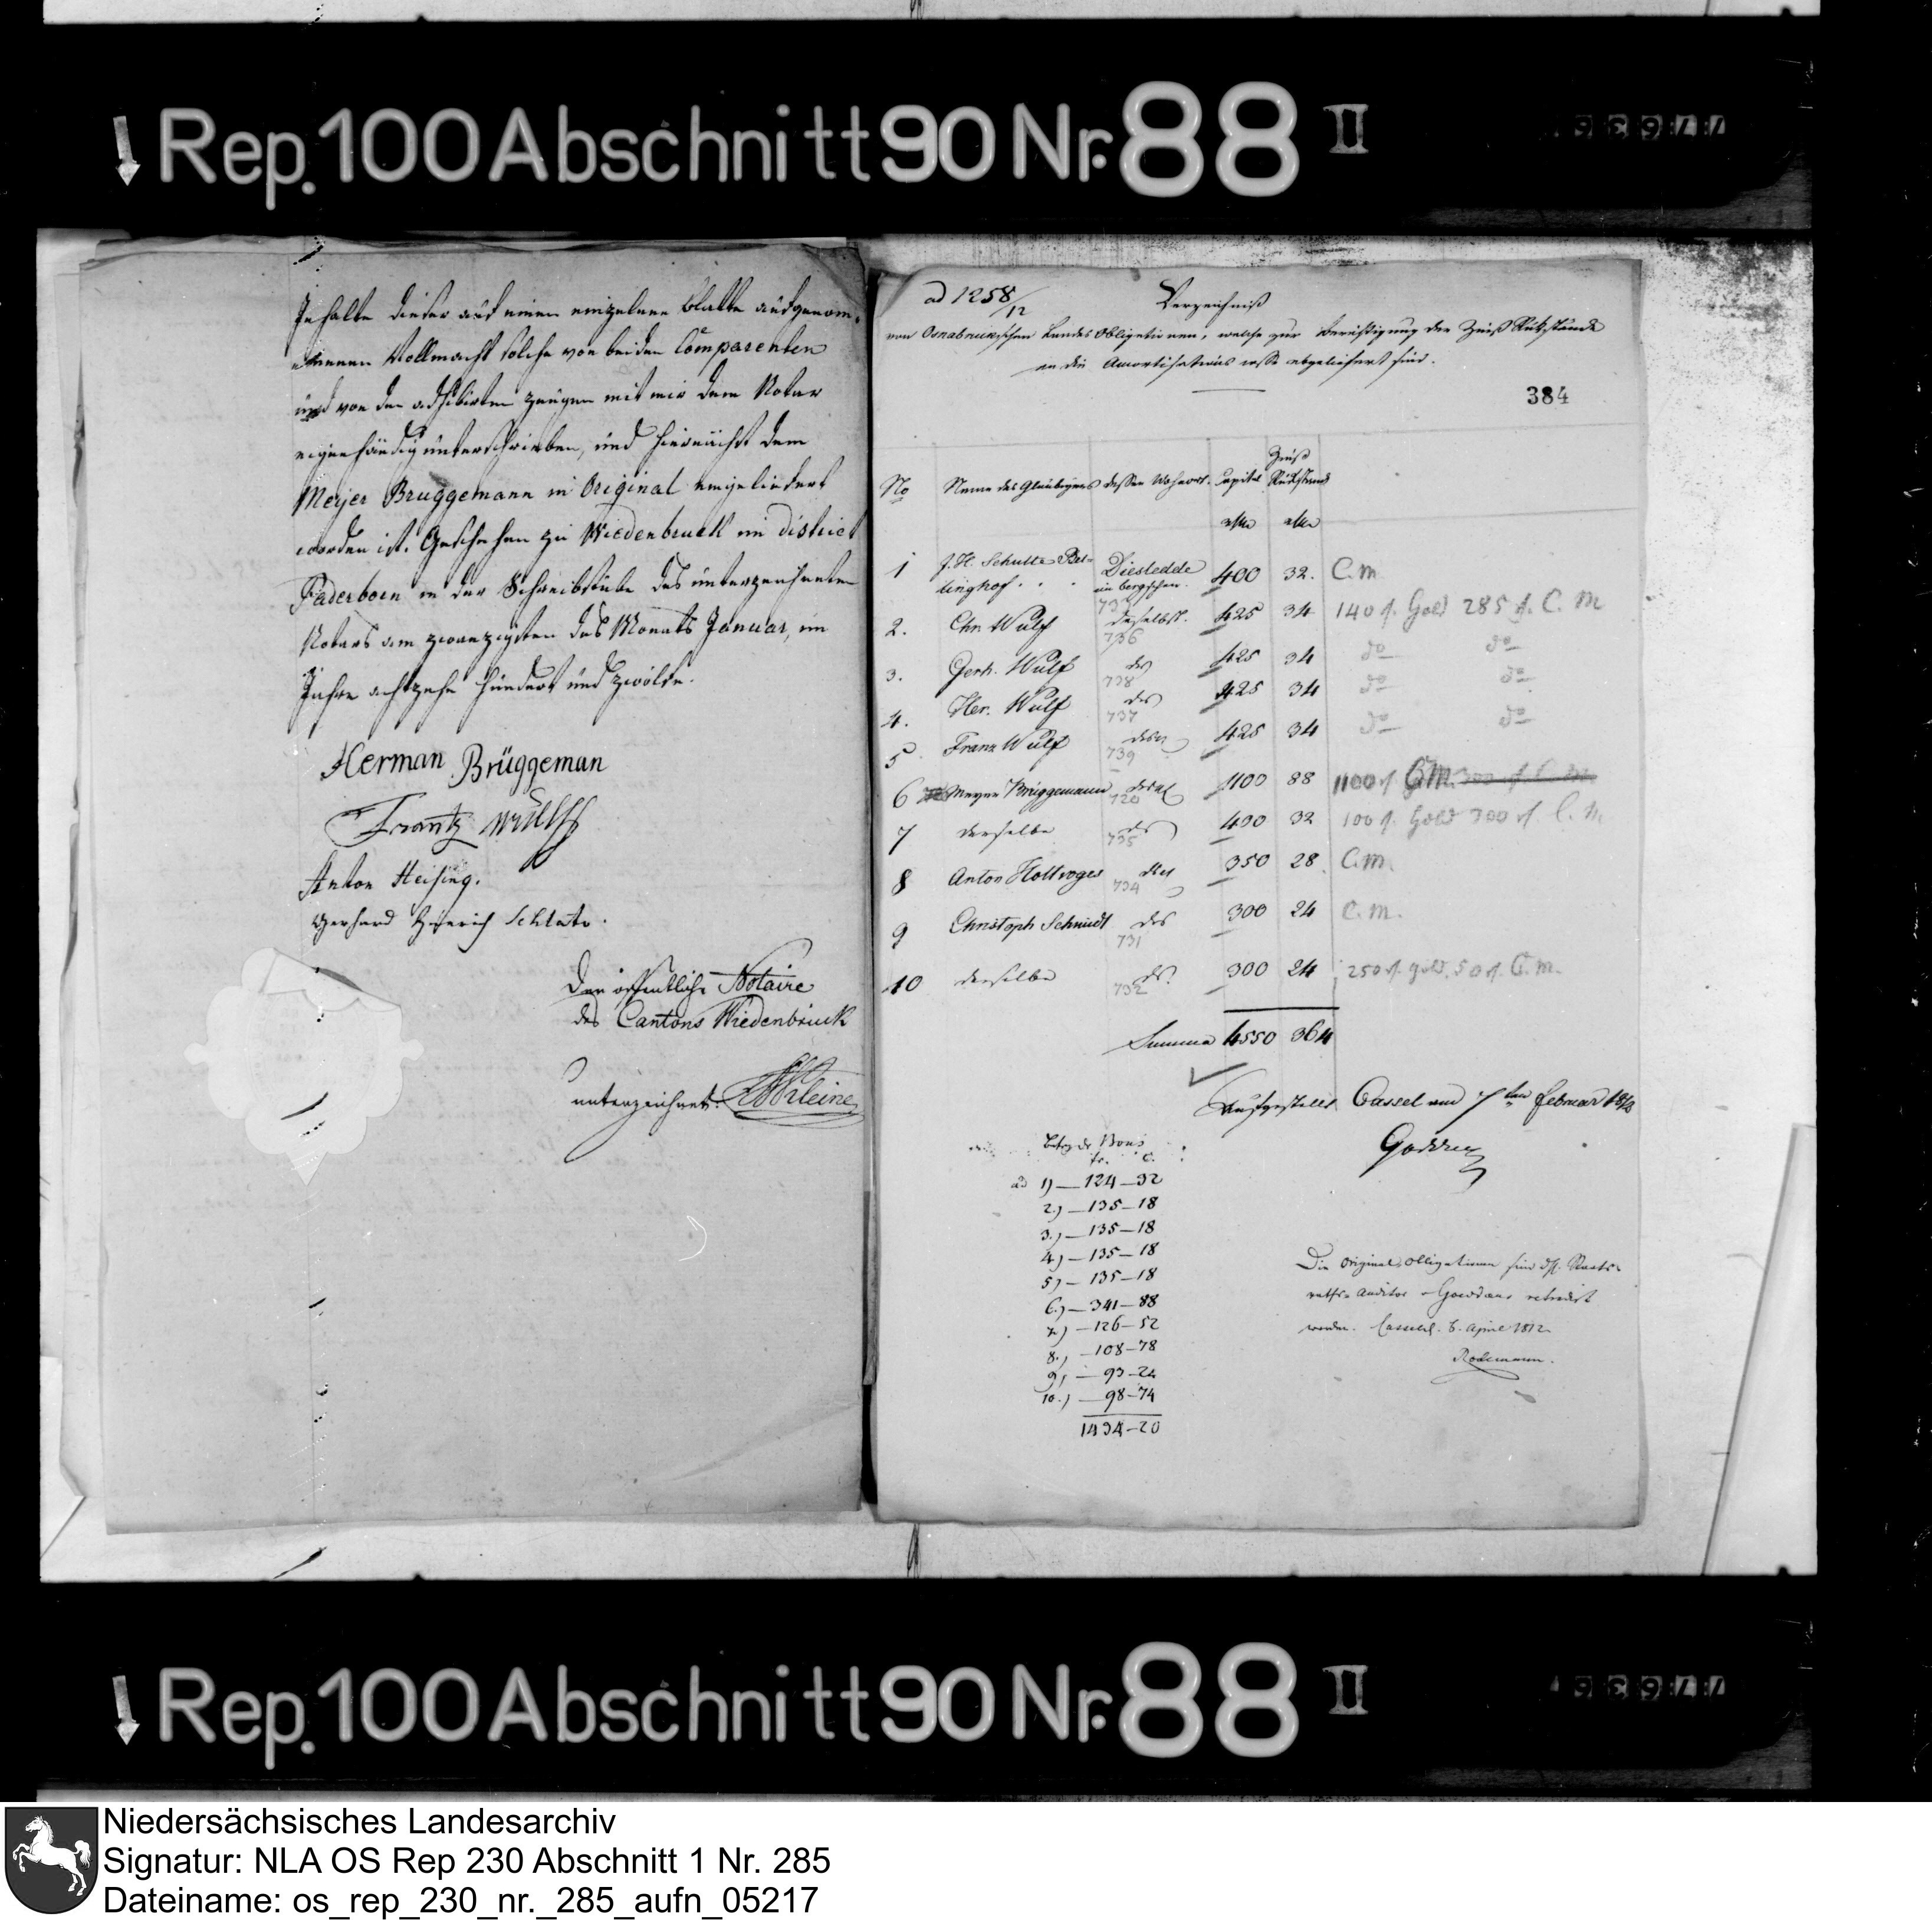 Rep. 100 Abschnitt 90 Nr. 88 II
Inhalte dieser auf einen einzelnen Blatte aufgenom-
menen Vollmacht solche von beiden Comparenten
und von den adhibirten Zeugen mit mir dem Notar
eigenhändig unterschrieben, und hiernächst dem
Meyer Bruggemann in Original eingeliefert
worden ist. Geschehen zu Wiedenbruck im District
Paderborn in der Schreibstube des unterzeichneten
Notars am zwanzigsten des Monats Januar, im
Jahre achtzehn hundert und zwölfe.
Herman Brüggeman
Frantz Wulff
Anton Heising.
Gerhard Henrich Schlatr.
Der öffentliche Notaire
des Cantons Wiedenbruck
unterzeichnet.
ad 1258/12
Verzeichniß
von Osnabruckschen Landes Obligationen, welche zur Berichtigung der Zinß Rückstände
an die Amortisations casse abgeliefert sind.
384
No Name des Glaübigers dessen Wohnort. Capital Zinß Rückstand
1 J. H. Schulte Bet- Diestedde 400 32. C. m
linghof . . im bergschen.
2. Chr. Wulf 737 daselbst. 425 34 140 f. Gold 285 f. C. M
3. Gerh. Wulf 736 das 425 34 do do
4. Her. Wulf 738 das 425 34 do do
5 Franz Wulf 737 das 425 34 do do
739
6 Meyer Brüggemann das 1100 88 1100 f C. M.
720
7 derselbe ds 400 32 100 f. Gold 300 f. C. M.
735
8 Anton Holtroges das 350 28 C. m.
734
9 Christoph Schmidt das 300 24 C. m.
731
10 derselbe ds. 300 24 250 f. gold. 50 f. C. m.
732
Summa 4550 364
Aufgestellt Cassel am 7ten Februar 1812
Betrg der Bons
fr. c.
ad 1) — 124 — 32
2.) — 135 — 18
3.) — 135 — 18
4) — 135 — 18
5) — 135 — 18
6.) — 341 — 88
7.) — 126 — 52
8.) — 108 — 78
9) — 93 — 24
10.) — 98 — 74
1434 — 20
Die original Obligationen sind dH. Staats-
raths-Auditor retradirt
worden. Cassel. 6. April 1812
Rodemann.
Rep. 100 Abschnitt 90 Nr. 88 II
Niedersächsisches Landesarchiv
Signatur: NLA OS Rep 230 Abschnitt 1 Nr. 285
Dateiname: os_rep_230_nr._285_aufn_05217